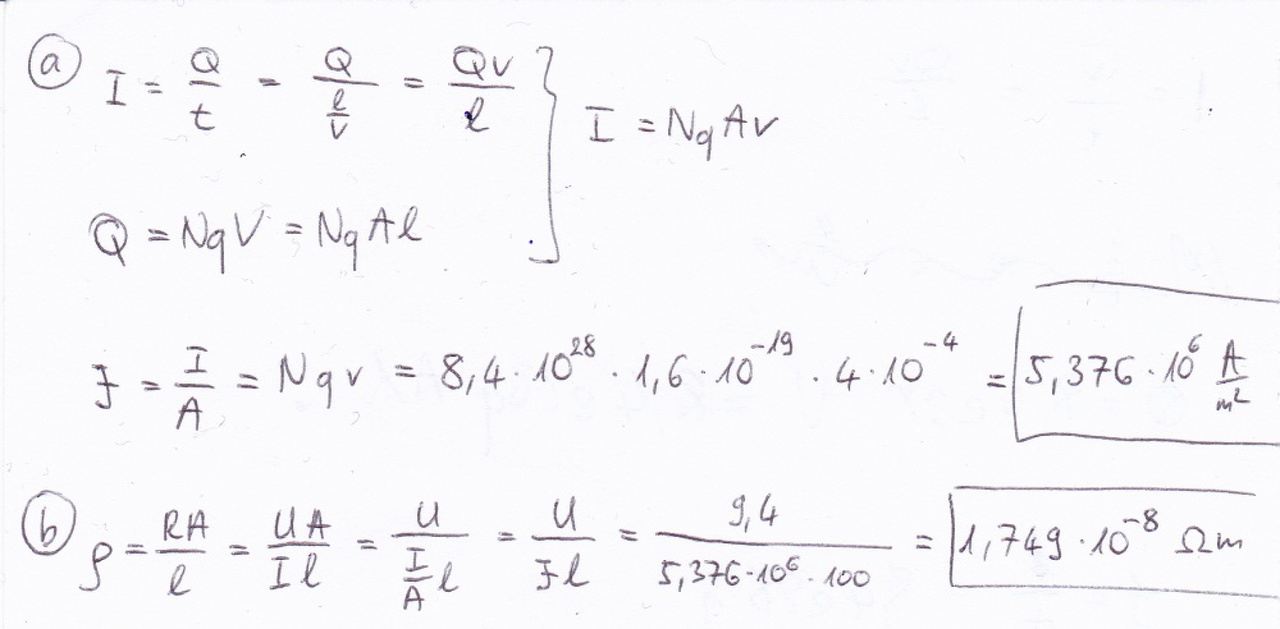 ⓐ I = Q/t = Q/(ℓ/v) = Qv/ℓ } I = NqAv
Q = NqV = NqAℓ
J = I/A = Nqv = 8,4·10²⁸ · 1,6·10⁻¹⁹ · 4·10⁻⁴ = 5,376·10⁶ A/m²
ⓑ ρ = RA/ℓ = UA/Iℓ = U/((I/A)ℓ) = U/Jℓ = 9,4/(5,376·10⁶·100) = 1,749·10⁻⁸ Ωm